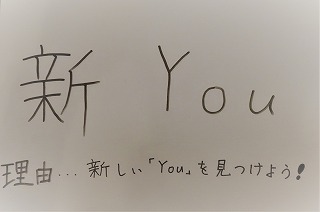 新 You
理由...新しい「You」を見つけよう!